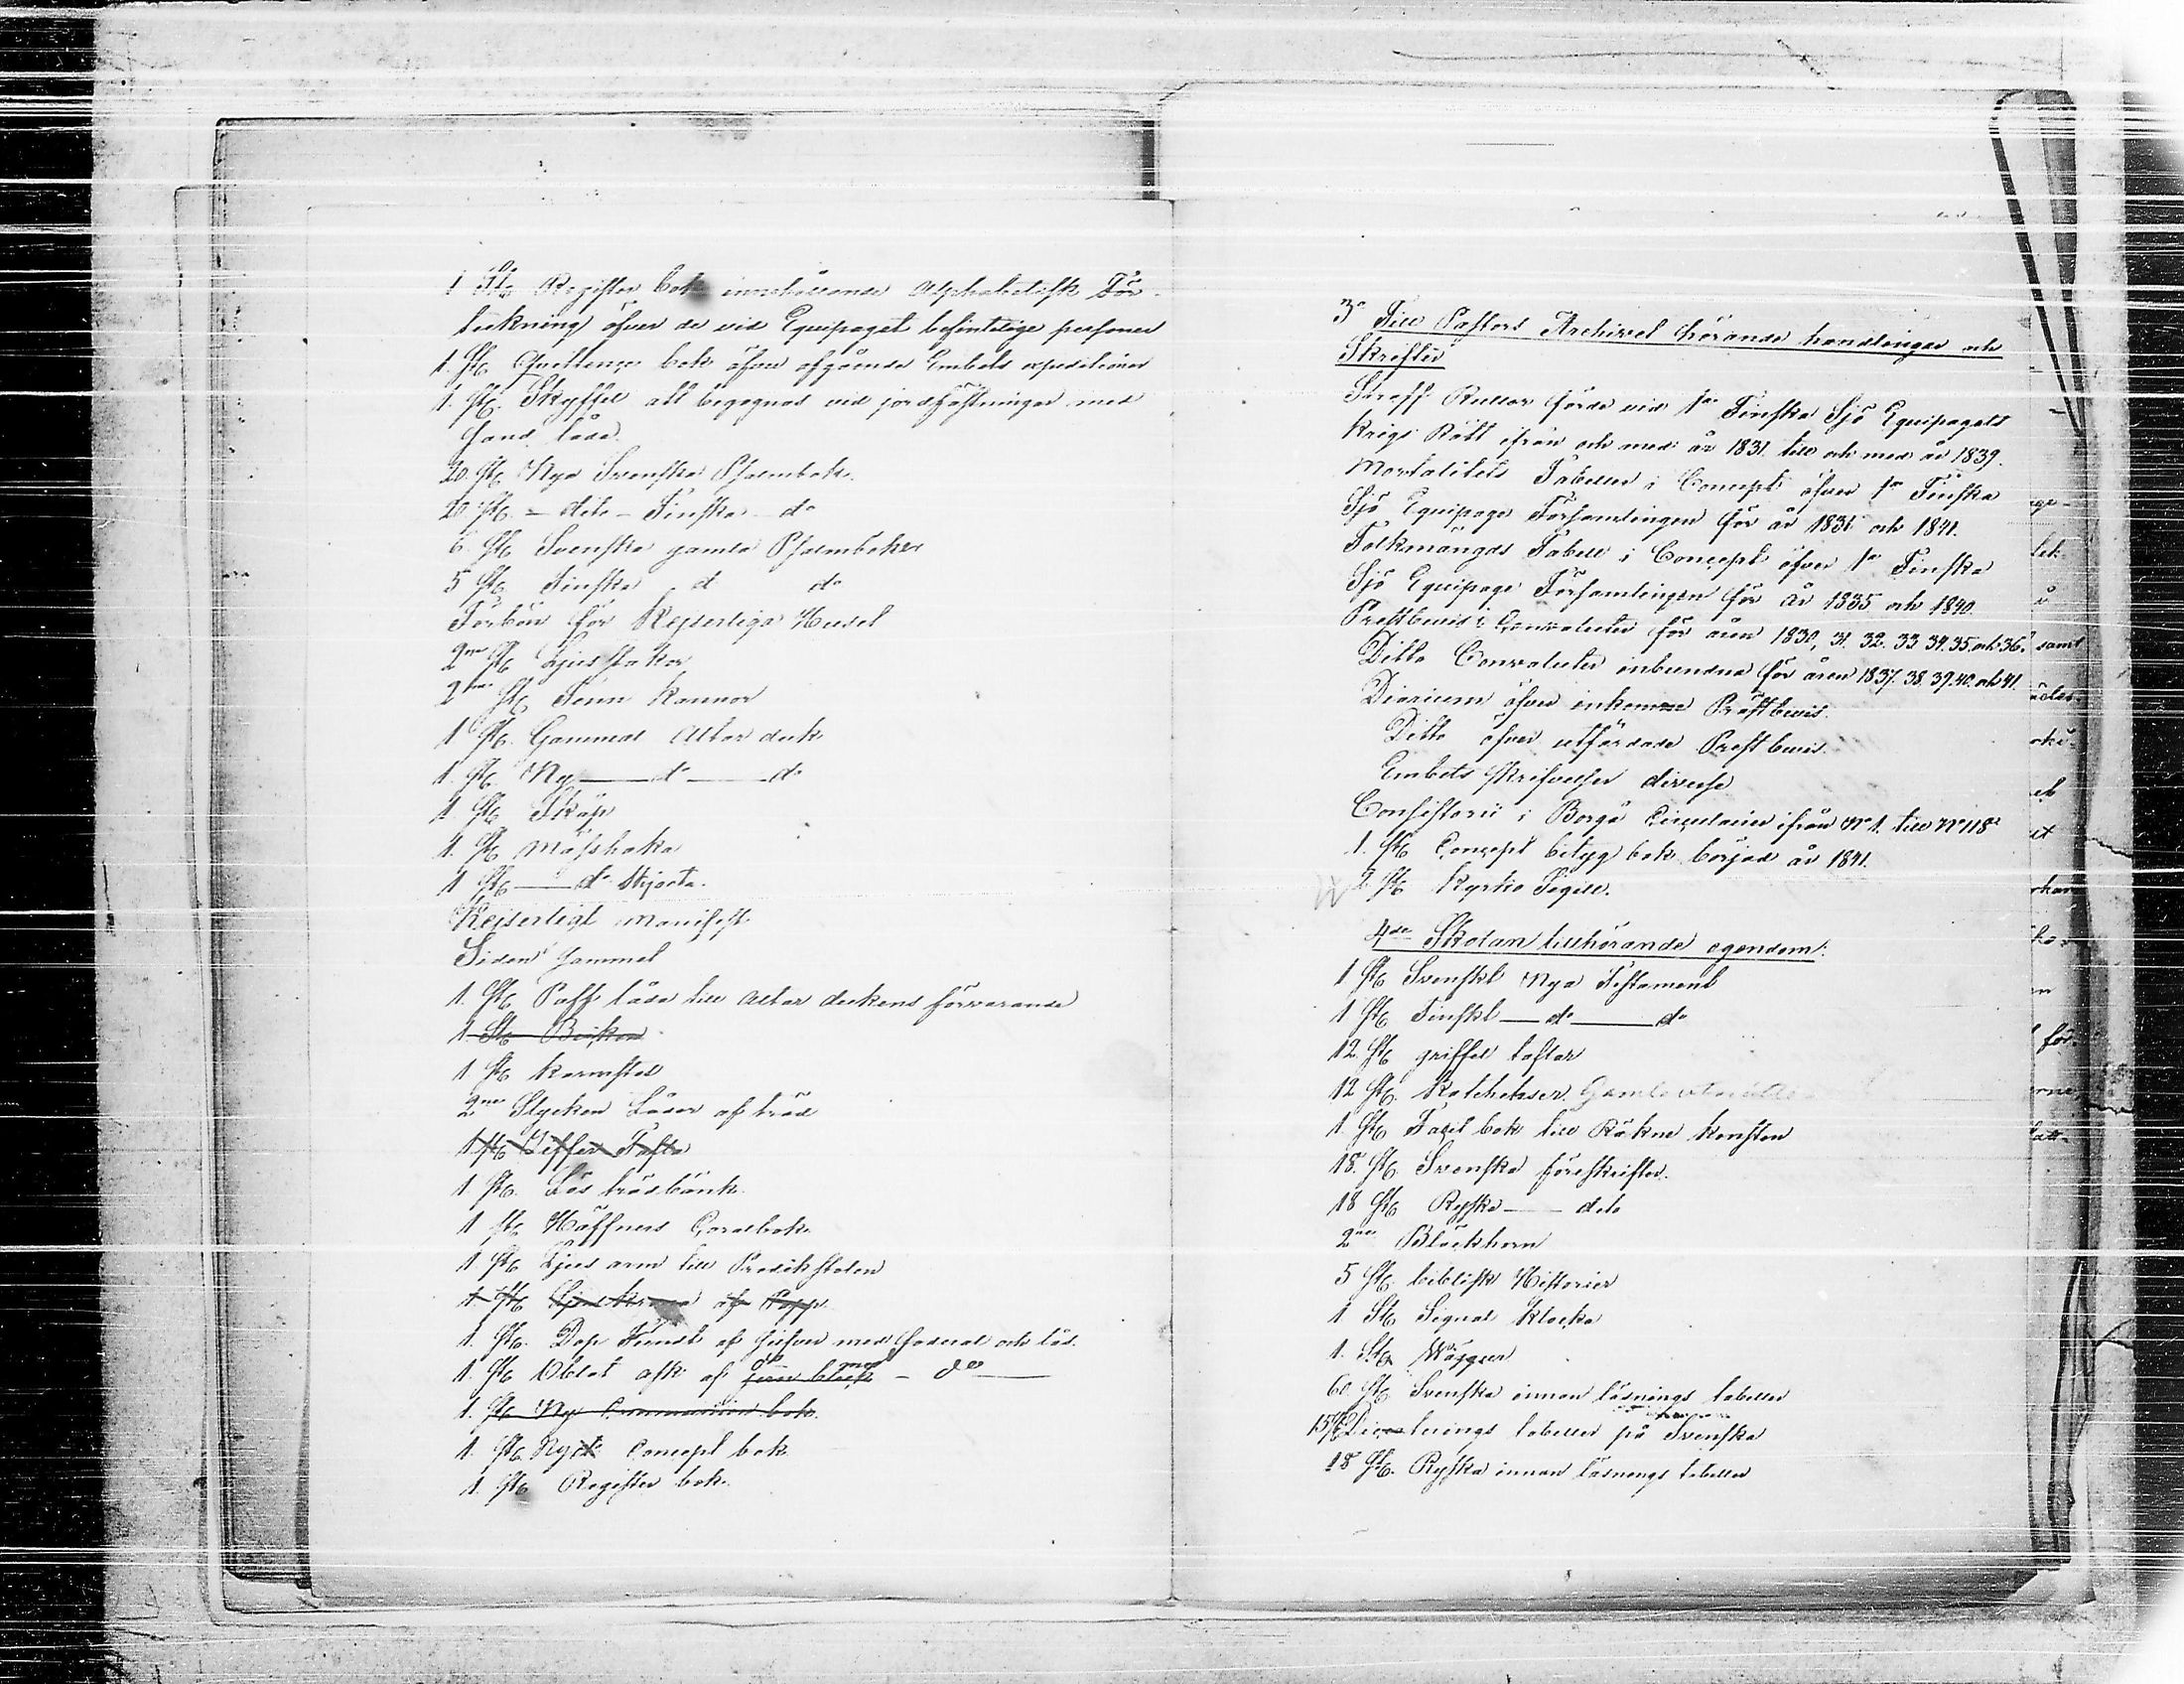 1 St. Register bok innehållande Alphabetisk För-
teckning öfver de vid Equipaget befintelige personer
1. St. Qvittence bok öfver afgående Embets expeditioner
1. St. Skyffel att begagnas vid jordfästningar med
20 St. Nya Svenska Psalmbok
20 St. - dito - Finska do
6. St. Svenska gamla Psalmböker
5 St. Finska d do
Förbön för Kejserliga Huset
2ne St. Ljusstakar
2ne St. Tenn Kannor
1 St. Gammal Altar duk
1. St. Ny — do — do
1 St. Skåp
1. St. Mässhaka
1 St. — do skjorta.
Kejserligt Manifest
Siden Sammet
1. St. låda till Altar dukens förvarande
1. St.
1 St. karmstol
2ne Stycken Lådor af träd
1 St. Ziffer Tafla
1 St. Lös trädbänk
1 St. Häffners Coralbok
1 St. Ljus arm till Predikstolen
1. St. Ljuskrona af
1. St. Dop Funt af Silfver med Foderal och lås.
1. St. Oblat ask af do jern bleck med - do —
1. St. Ny Communion bok.
1. St. Concept bok
1. St. Register bok.
3o Till Pastors Archivet hörande handlingar och
Skrifter
Straff Rullor förde vid 1a Finska Sjö Equipagets
Krigs Rätt ifrån och med år 1831. till och med år 1839.
Mortalitets Tabeller i Concept öfver 1a Finska
Sjö Equipage Församlingen för år 1831 och 1841.
Folkmängds Tabell i Concept öfver 1a Finska
Sjö Equipage Församlingen för år 1835 och 1840.
Prestbevis i Convoluter för åren 1830, 31. 32. 33 34. 35. och 36.
Ditto Convoluter inbundna för åren 1837. 38. 39. 40. och 41.
Diarium öfver inkomne Prästbevis.
Ditto öfver utfärdade Prestbevis
Embets skrifvelser diverse
Consistorii i Borgå Circulairer ifrån No 1. till No 118
1. St. Concept betyg bok börjad år 1841.
2 St. Kyrko Sigill.
4de Skolan tillhörande egendom.
1 St. Svenskt Nya Testament
1 St. Finskt — do — do
12. St. griffel taflor
12 St. Katcheser Gamla
1. St. Facit bok till Räkne konsten
18. St. Svenska föreskrifter.
18 St. Ryska — dito
2ne Bläckhorn
5 St. biblisk Historier
1 St. Signal klocka
1. St.
60. St. Svenska innan läsnings tabeller
15 St. tabeller på Svenska
18 St. Ryska innan läsnings tabeller
samt
för-